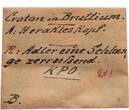 Croton in Bruttium.
A: Herakleskopf.
R: Adler eine Schlan-
ge zerreissend.
KPO.
B.